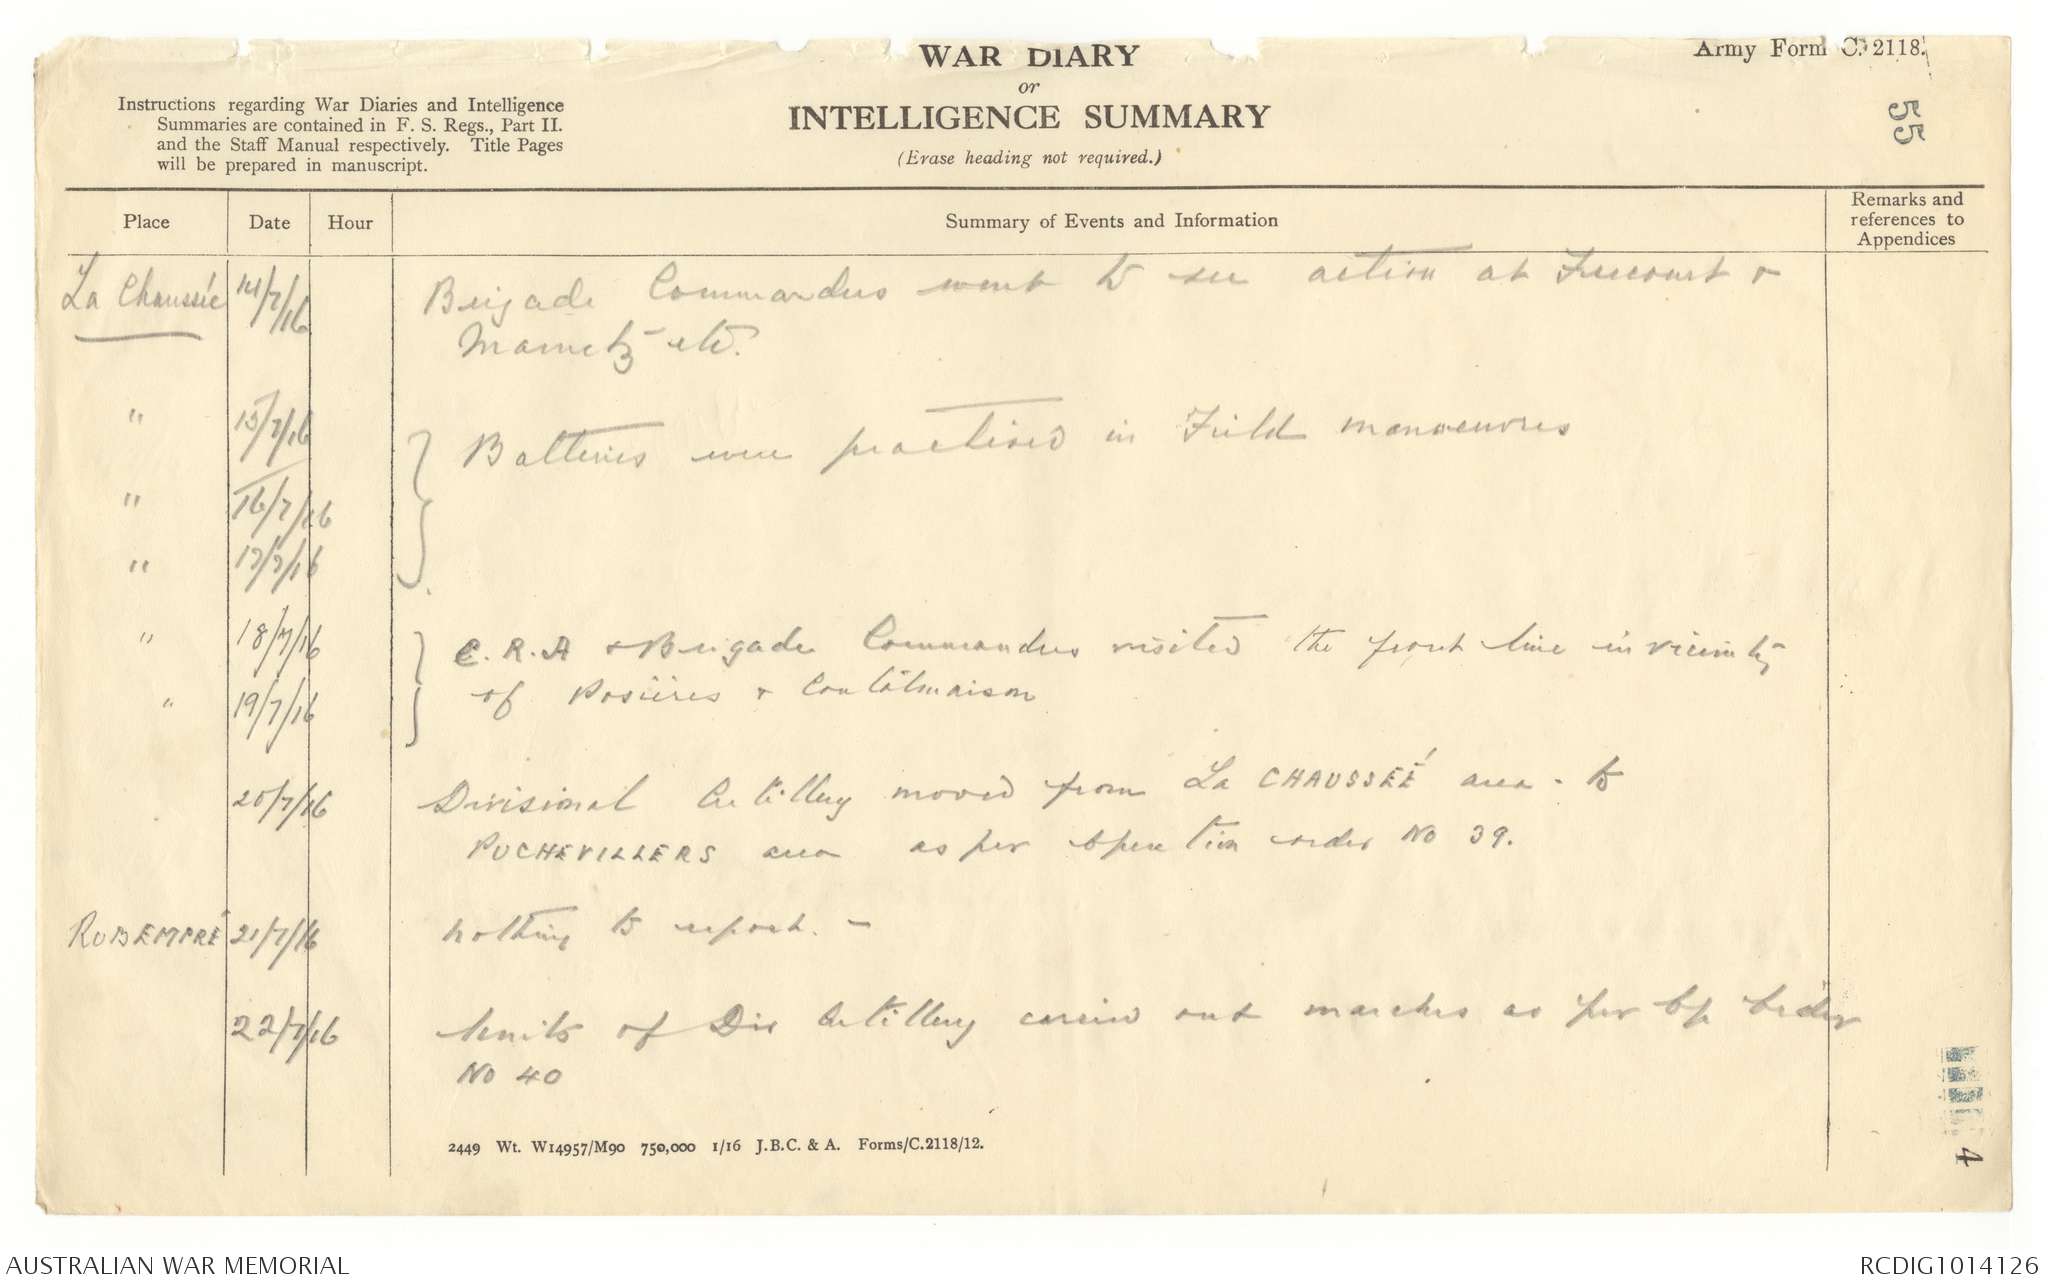 WAR DIARY
or
INTELLIGENCE SUMMARY
(Erase heading not required.)
Army Form C. 2118.
55
Instructions regarding War Diaries and Intelligence
Summaries are contained in F. S. Regs., Part II.
and the Staff Manual respectively. Title Pages
will be prepared in manuscript.
Place Date Hour Summary of Events and Information Remarks and references to Appendices
La Chaussée 14/7/16 Brigade Commanders went to see action at Fricourt &
Mametz etc.
" 15/7/16 Batteries were practised in Field manoeuvres
" 16/7/16
" 17/7/16
" 18/7/16 C.R.A & Brigade Commanders visited the front line in vicinity
" 19/7/16 of Posières & Contalmaison
20/7/16 Divisional Artillery moved from La CHAUSSÉÉ area - to
PUCHEVILLERS area as per operation order No 39.
RUBEMPRÉ 21/7/16 Nothing to report. -
22/7/16 Units of Div Artillery carried out marches as per Op Order
No 40
2449 Wt. W14957/M90 750,000 1/16 J.B.C. & A. Forms/C.2118/12.
4
AUSTRALIAN WAR MEMORIAL
RCDIG1014126